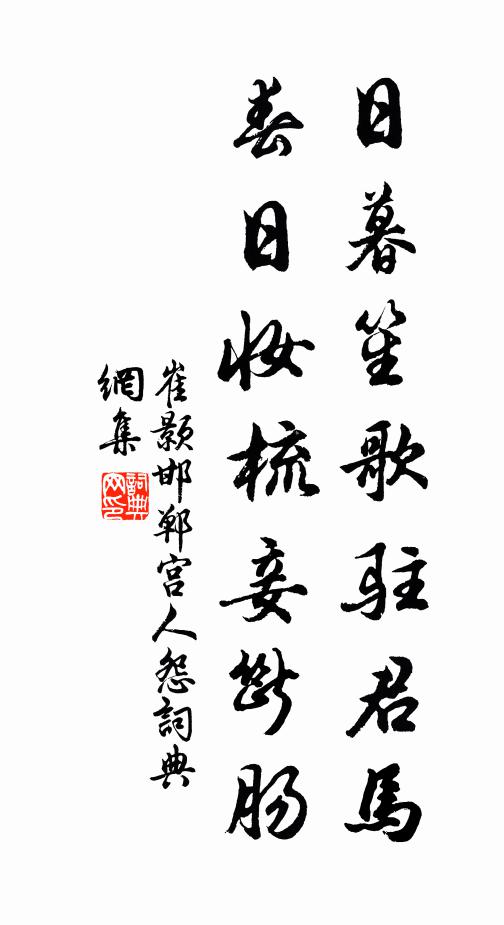 日暮笙歌駐君馬
春日妝梳妾斷腸
崔顥邯鄲宮人怨詞典
網集
詞典
网印